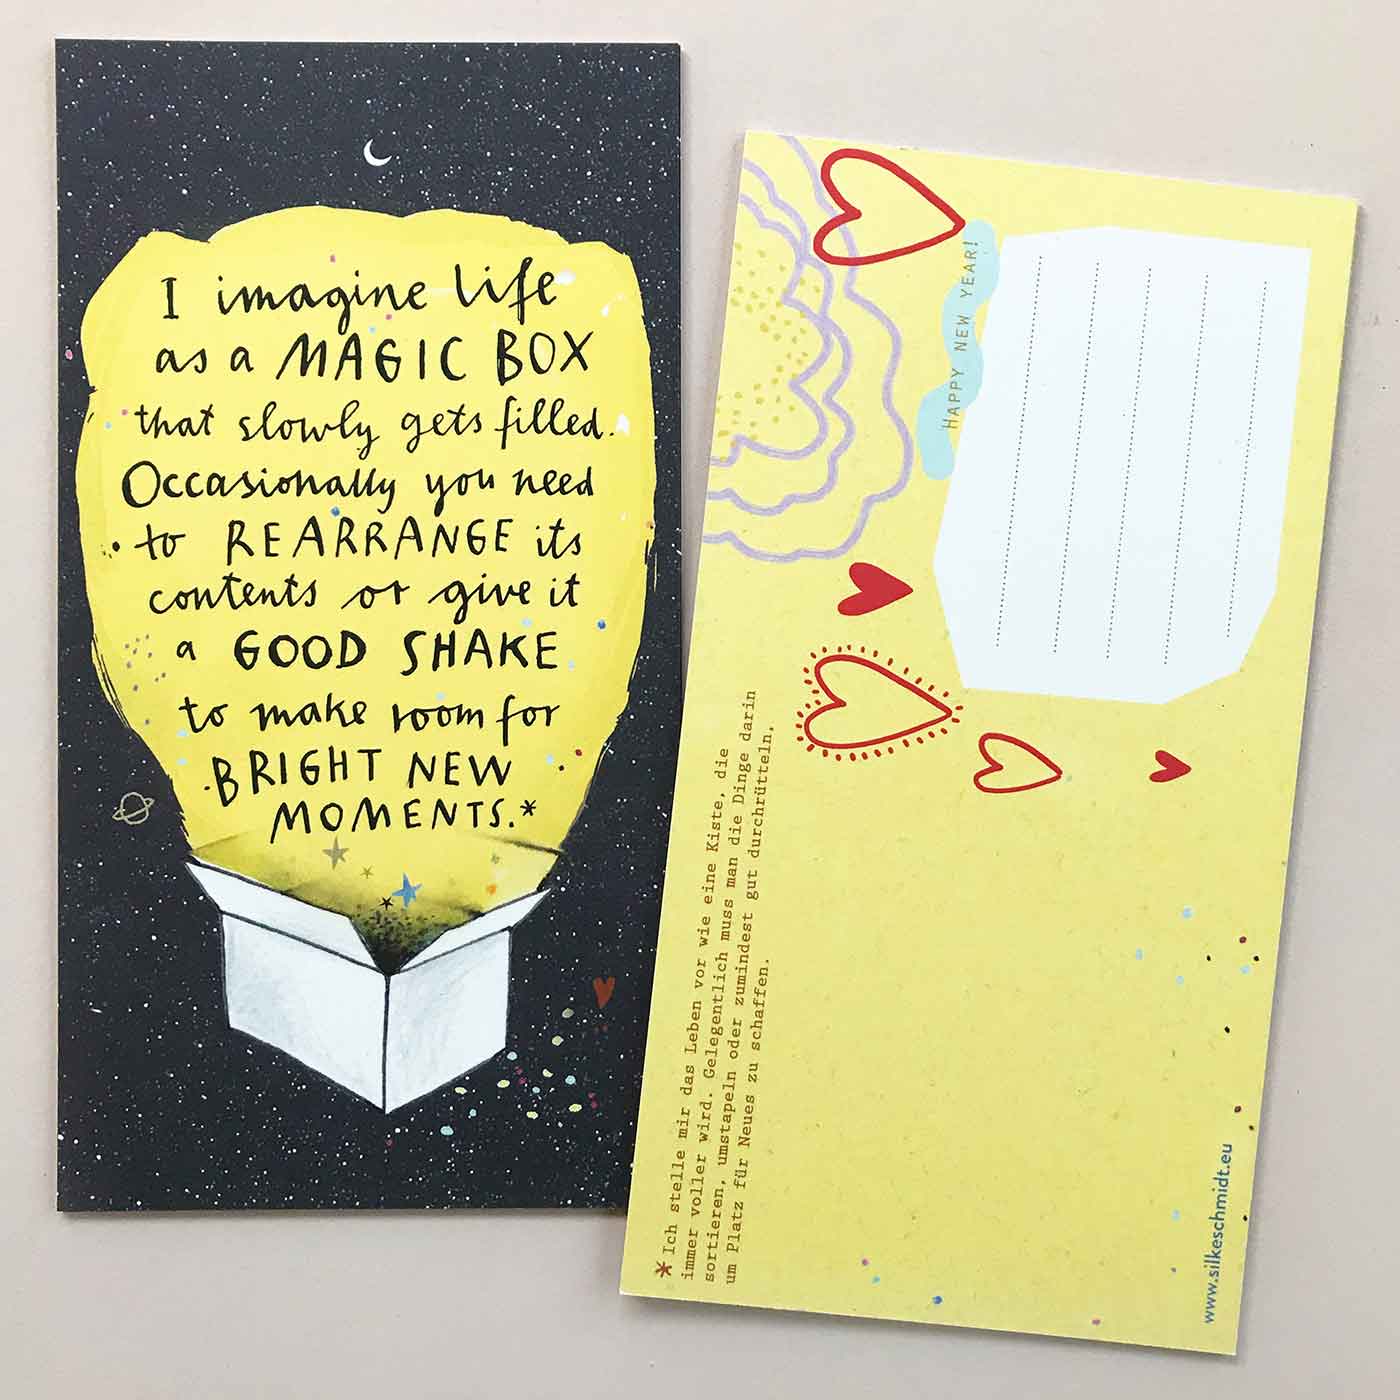 I imagine life
as a MAGIC BOX
that slowly gets filled.
Occasionally you need
to REARRANGE its
contents or give it
a GOOD SHAKE
to make room for
BRIGHT NEW
MOMENTS.*
HAPPY NEW YEAR!
* Ich stelle mir das Leben vor wie eine Kiste, die
immer voller wird. Gelegentlich muss man die Dinge darin
sortieren, umstapeln oder zumindest gut durchrütteln,
um Platz für Neues zu schaffen.
www.silkeschmidt.eu